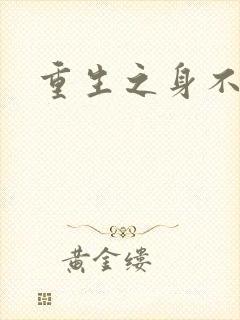 重生之身不
黄金缕